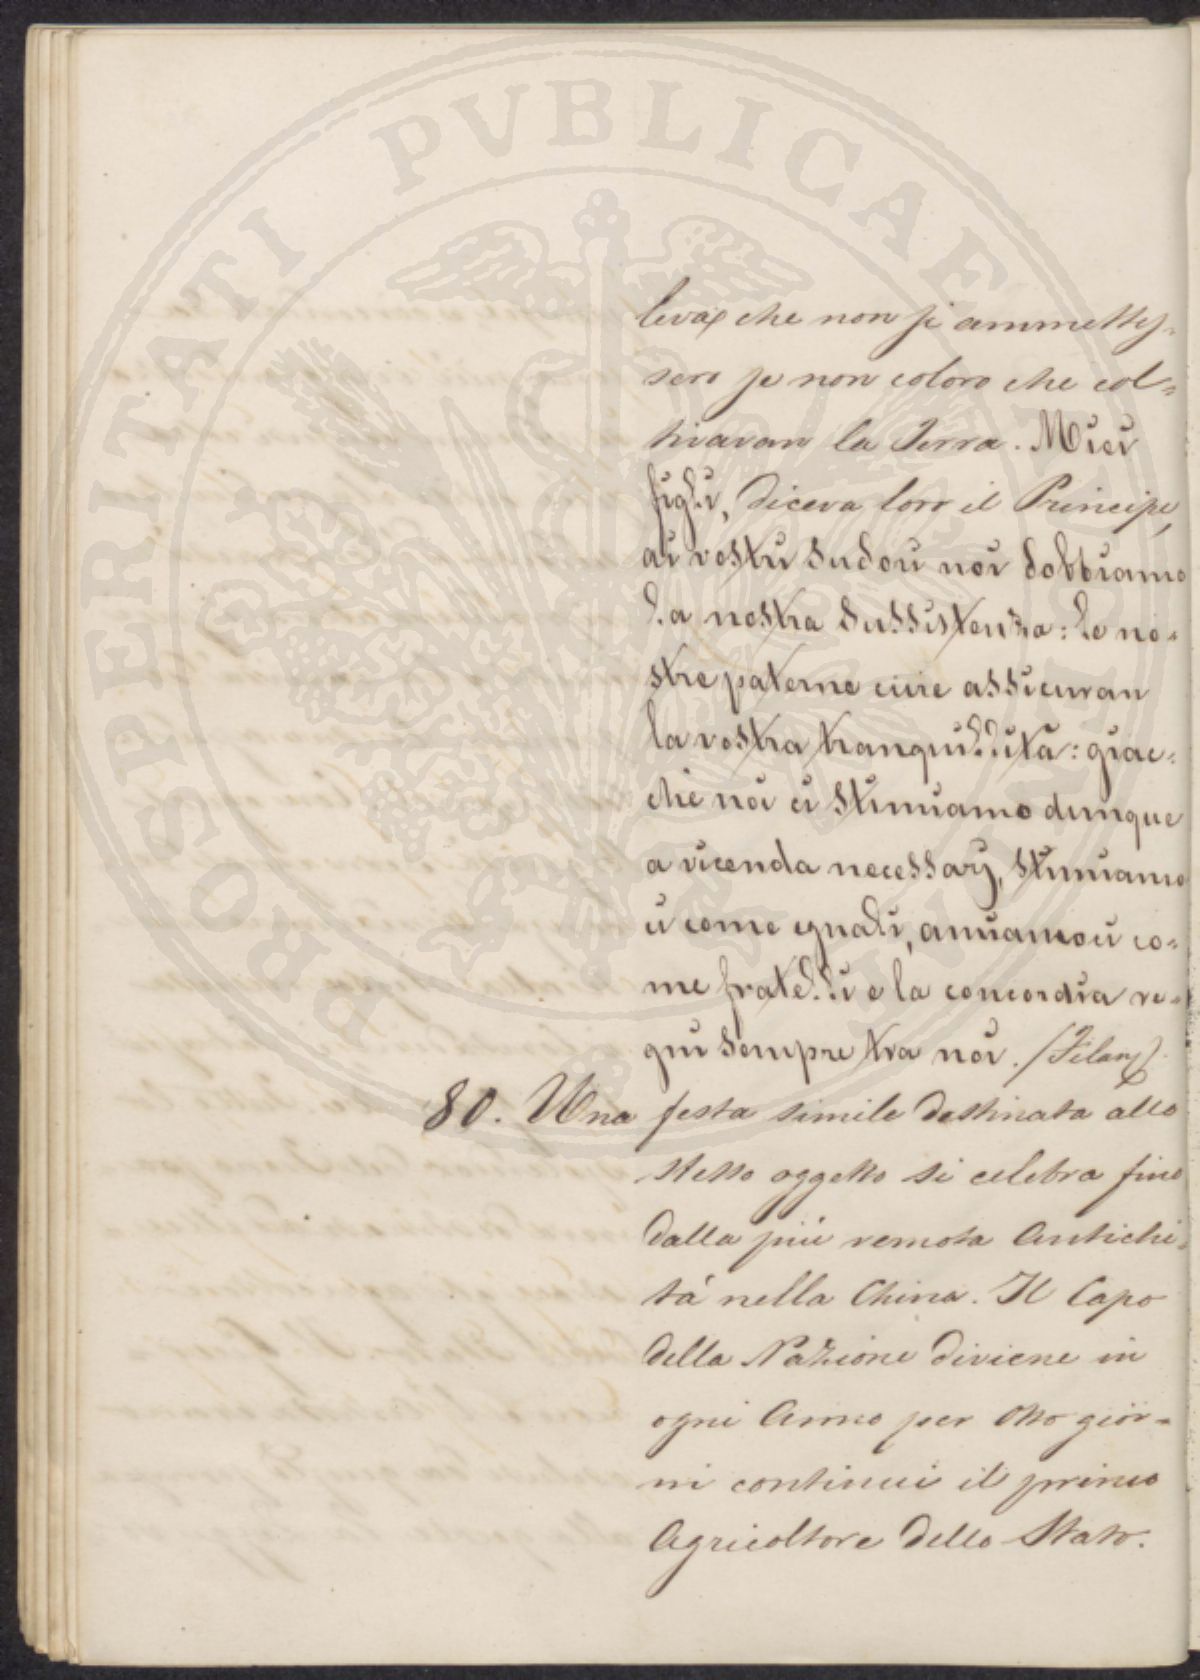 PROSPERITATI PVBLICAE
levasi che non si ammettes-
sero se non coloro che col=
tivavan la Terra. Miei
figli, diceva loro il Principe,
ai vostri sudori noi dobbiamo
la nostra sussistenza: le no=
stre paterne cure assicuran
la vostra tranquillità: giac=
chè noi ci stimiamo dunque
a vicenda necessarj, stimiamo
ci come eguali, amiamoci co=
me fratelli e la concordia re=
gni sempre tra noi. /Filang/.
80. Una festa simile destinata allo
stesso oggetto si celebra fino
dalla più remota Antichi=
tá nella China. Il Capo
della Nazione diviene in
ogni Anno per otto gior=
ni continui il primo
Agricoltore dello Stato.